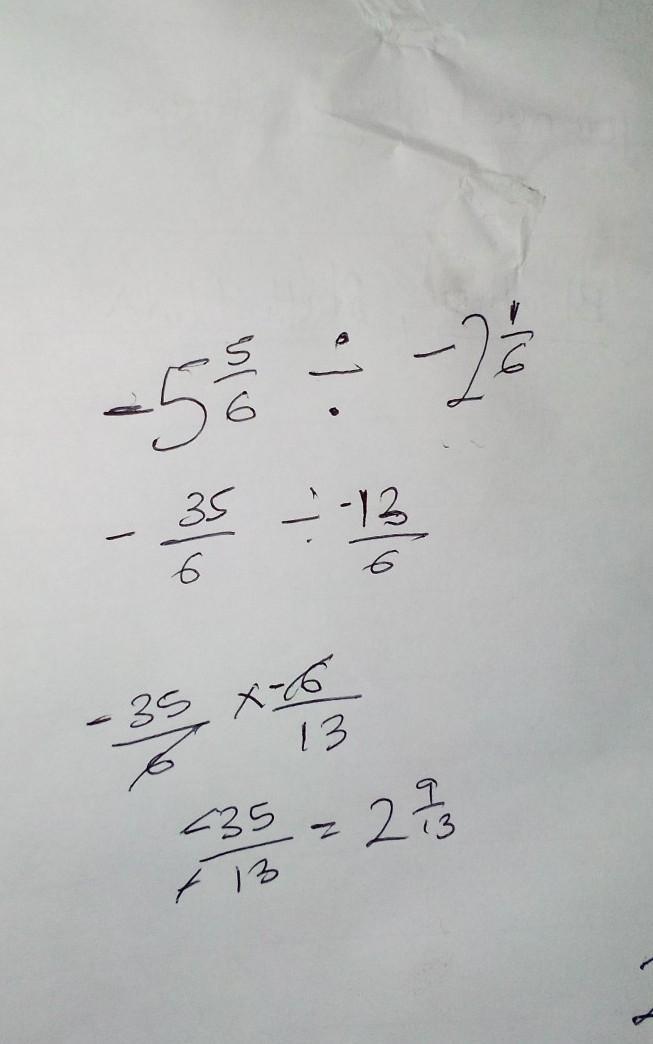 -5 5/6 ÷ -2 1/6
- 35/6 ÷ -13/6
-35/6 × -6/13
-35/-13 = 2 9/13